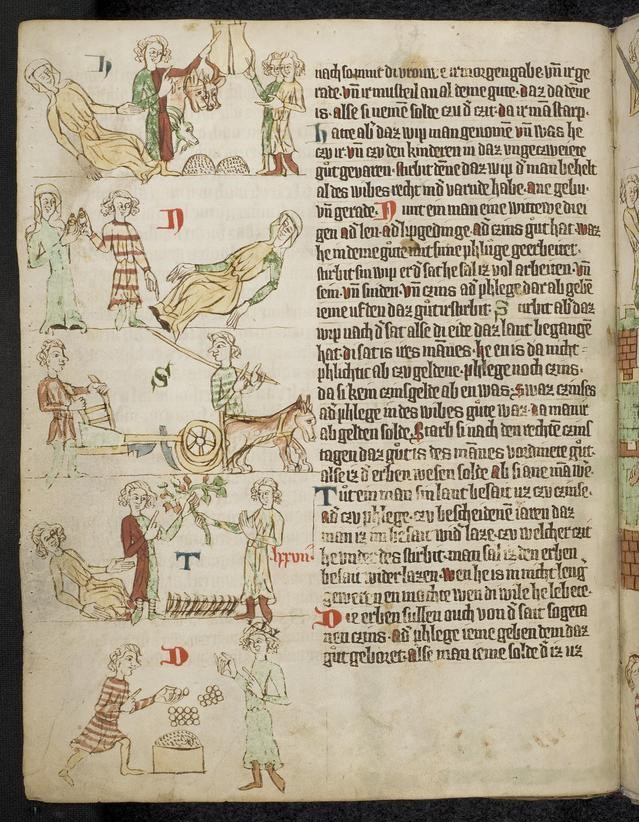 nach so nimt di vrouwe ir morgengabe· vn̄ ir ge
rade· vn̄ ir musteil an al deme gute· daz da dēne
is· alse si nemē solde czu d̓ czit· da ir mā starp·
Hatte ab̓ daz wip man genomē vn̄ was he
czu ir· vn̄ czu den kinderen in daz vngeczweiete
gůt gevaren· stirbit dēne daz wip d̓ man behelt
al des wibes recht in d̓ varnde habe· ane gebu·
vn̄ gerade· Nimt ein man eine wittewe di ei
gen ad̓ len· ad̓ lipgedinge· ad̓ czins gůt hat· waz
he in deme gute mit sime phlůge geerbeitet·
stirbit sin wip er d̓ sache sal iz vol arbeiten· vn̄
sein· vn̄ sniden· vn̄ czins ad̓ phlege dar ab gebē
ieme uf den daz gůt irstirbit· Stirbit ab̓ daz
wip nach d̓ sat alse di eide daz lant begangē
hat· di sat is ires mānes· he en is da nicht
phlichtic ab czu geldene· phlege noch czins·
da si kein czinsgelde ab en was· Swaz czinses
ad̓ phlege in des wibes gůte was· da man ir
ab gelden solde· Starb si nach den rechtē czins
tagen daz gůt is des mānes vordinete gůt·
alse iz d̓ erben wesen solde ab si ane mā we·
Tůt ein man sin lant besait uz czu czinse·
ad̓ czu phlege· czu bescheidenē iaren daz
man iz im besait wid̓ laze· czu welcher czit
he vnd̓ des stirbit· man sal iz den erben
besait wider lazen· wen he is in nicht leng̓
geweren en mochte wen di wile he lebete·
Die erben sullen ouch von d̓ sait so geta
nen czins· ad̓ phlege ieme geben dem daz
gůt geboret· alse man ieme solde d̓ iz uz
H
N
S
T
lxxvii·
D